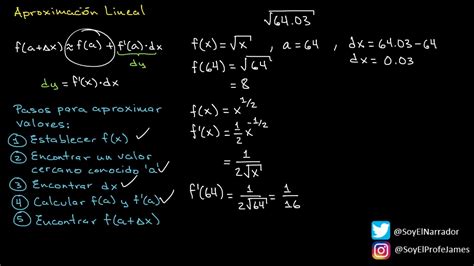 Aproximación Lineal
f(a+Δx) ≈ f(a) + f'(a)·dx
dy
dy = f'(x)·dx
Pasos para aproximar
valores:
① Establecer f(x) ✓
② Encontrar un valor
cercano conocido 'a' ✓
③ Encontrar dx ✓
④ Calcular f(a) y f'(a) ✓
⑤ Encontrar f(a+Δx)
√64.03
f(x) = √x , a = 64 , dx = 64.03 - 64
f(64) = √64 dx = 0.03
= 8
f(x) = x^1/2
f'(x) = 1/2 x^-1/2
= 1/(2√x)
f'(64) = 1/(2√64) = 1/16
@SoyElNarrador
@SoyElProfeJames